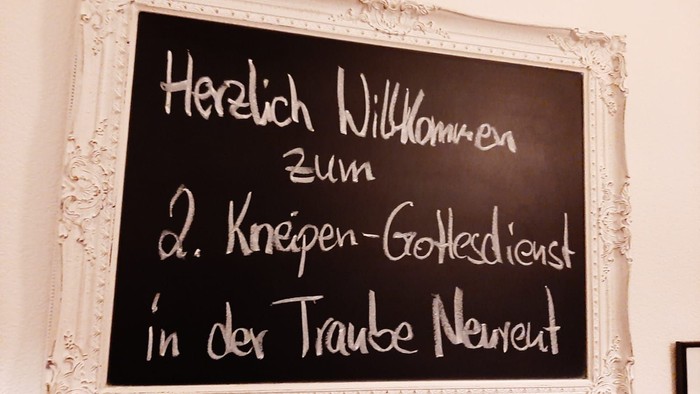 Herzlich Willkommen
zum
2. Kneipen-Gottesdienst
in der Traube Neureut